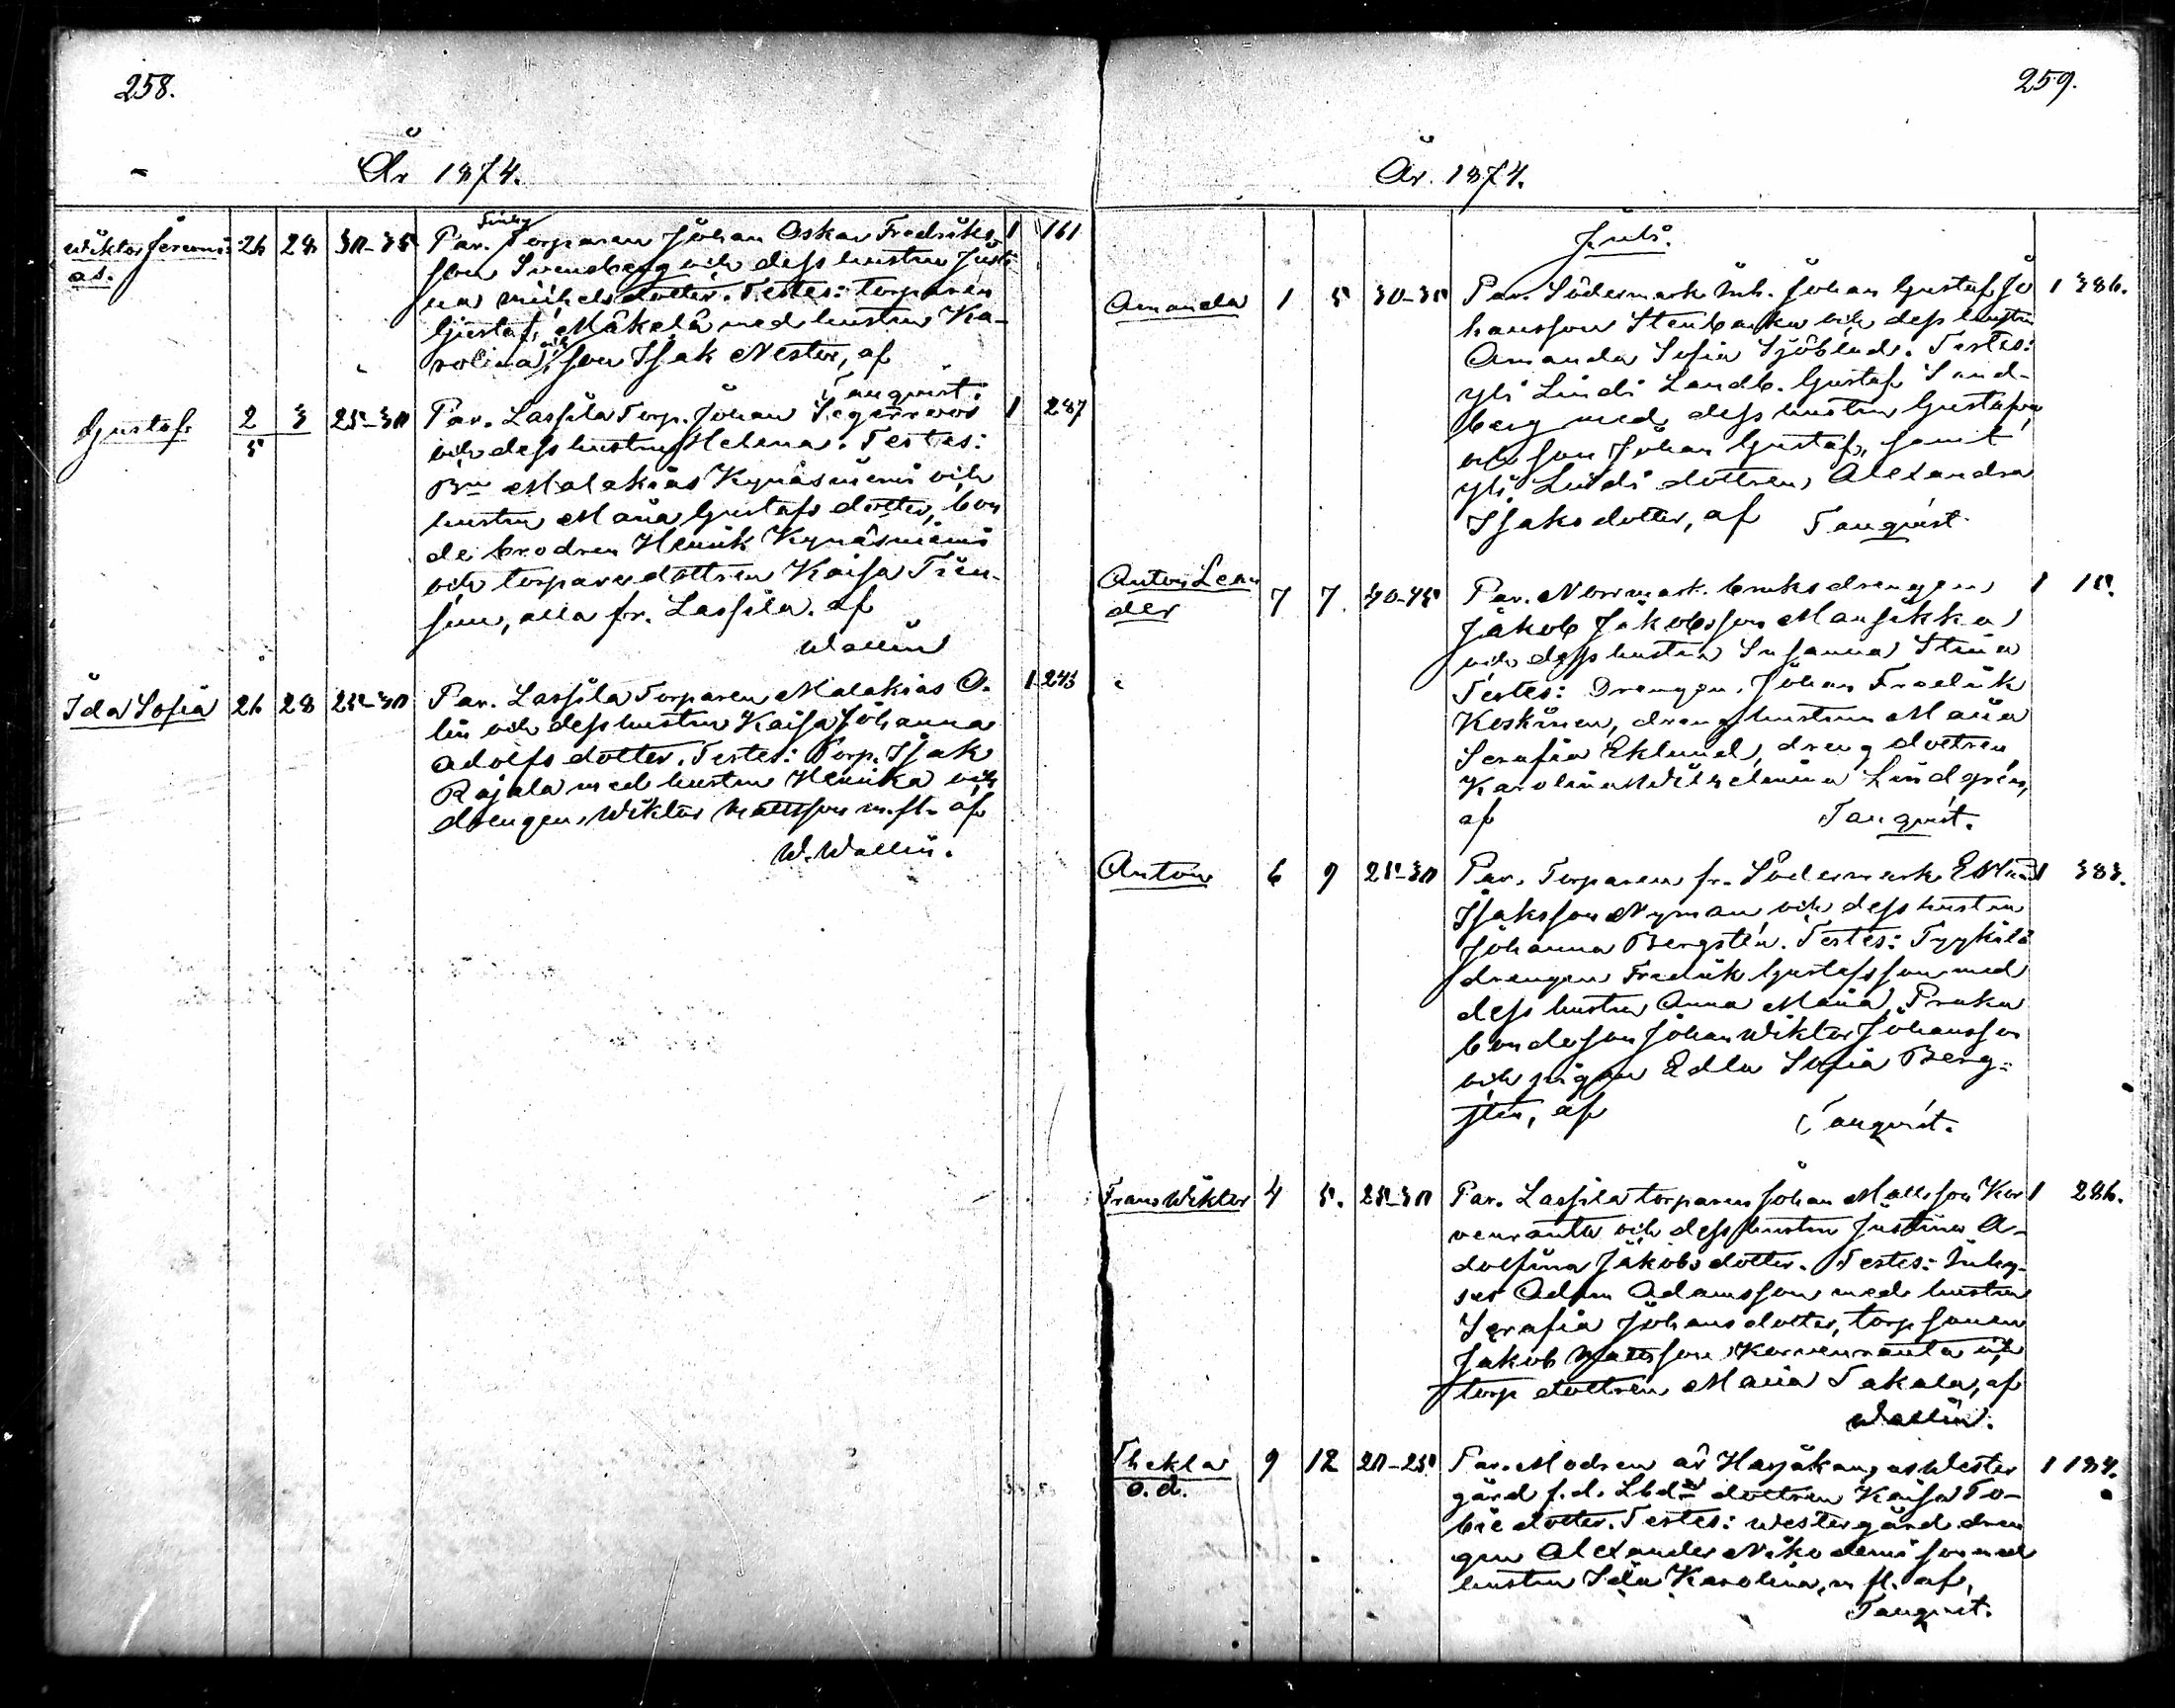 258.
År 1874.
Wiktor Jeremi- 26 28 30-35 Par. Torparen Johan Oskar Fredriks- 1 161
as. son Svensberg och dess hustru Justi-
na Michelsdotter. Testes: torparen
Gustaf Mäkelä med hustru Ka-
rolina, och son Isak Nestor, af
Tanqvist.
Gustaf 2/5 3 25-30 Par. Lassila Torp. Johan Segerroos 1 287
och dess hustru Helena. Testes:
Bn Malakias Kynäsniemi och
hustru Maria Gustafsdotter, bon
de brodren Henrik Kynäsniemi
och torparedottren Kaisa
alla fr. Lassila. af
Wallin
Ida Sofia 26 28 25-30 Par. Lassila Torparen Malakias O- 1 243
lin och dess hustru Kaisa Johanna
Adolfsdotter. Testes: Torp. Isak
Rajala med hustru Henrika och
drengen Wiktor Mattsson m.fl. af
W. Wallin.
259.
År. 1874.
Juli.
Amanda 1 5 30-35 Par. Södermark Inh. Johan Gustaf Jo 1 386.
hansson Stenbacka och dess hustru
Amanda Sofia Sjöblad. Testes:
Yli Lindi Landb. Gustaf Sand-
berg med dess hustru Gustafva
och son Johan Gustaf, samt
Yli Lindi dottren Alexandra
Isaksdotter, af Tanqvist
Anton Lean 7 7. 40-45 Par. Norrmark bruksdrengen 1 15.
der Jakob Jakobsson Mansikka
och dess hustru Susanna Stina
Testes: Drengen Johan Fredrik
Koskinen, dreng hustrun Maria
Serafia Eklund, dreng dottren
Karolina Wilhelmina Lindgren,
af Tanqvist.
Anton 6 9 25-30 Par. Torparen fr. Södermark 1 383.
Isaksson Nyman och dess hustru
Johanna Bergstén. Testes: Tyykilä
drengen Fredrik Gustafsson med
dess hustru Anna Maria,
bondeson Johan Wiktor Johansson
och pigan Edla Sofia Berg-
stén, af
Tanqvist.
Frans Wiktor 4 5. 25-30 Par. Lassila torparen Johan Mattsson Kor 1 286.
venranta och dess hustru Justina A-
dolfina Jakobsdotter. Testes: Inhy-
ses Adam Adamsson med hustru
Serafia Johansdotter, torpsonen
Jakob Mattsson Korvenranta och
torp dottren Maria Takala, af
Wallin.
Thekla 9 12 20-25 Par. Modren är Harjakangas Wester 1 184.
o.ä. gård f.d. Lbds dottren Kaisa To-
bie dotter. Testes: Westergård dren
gen Alexander Nikodemisson med
hustru Ida Karolina, m.fl. af,
Tanqvist.